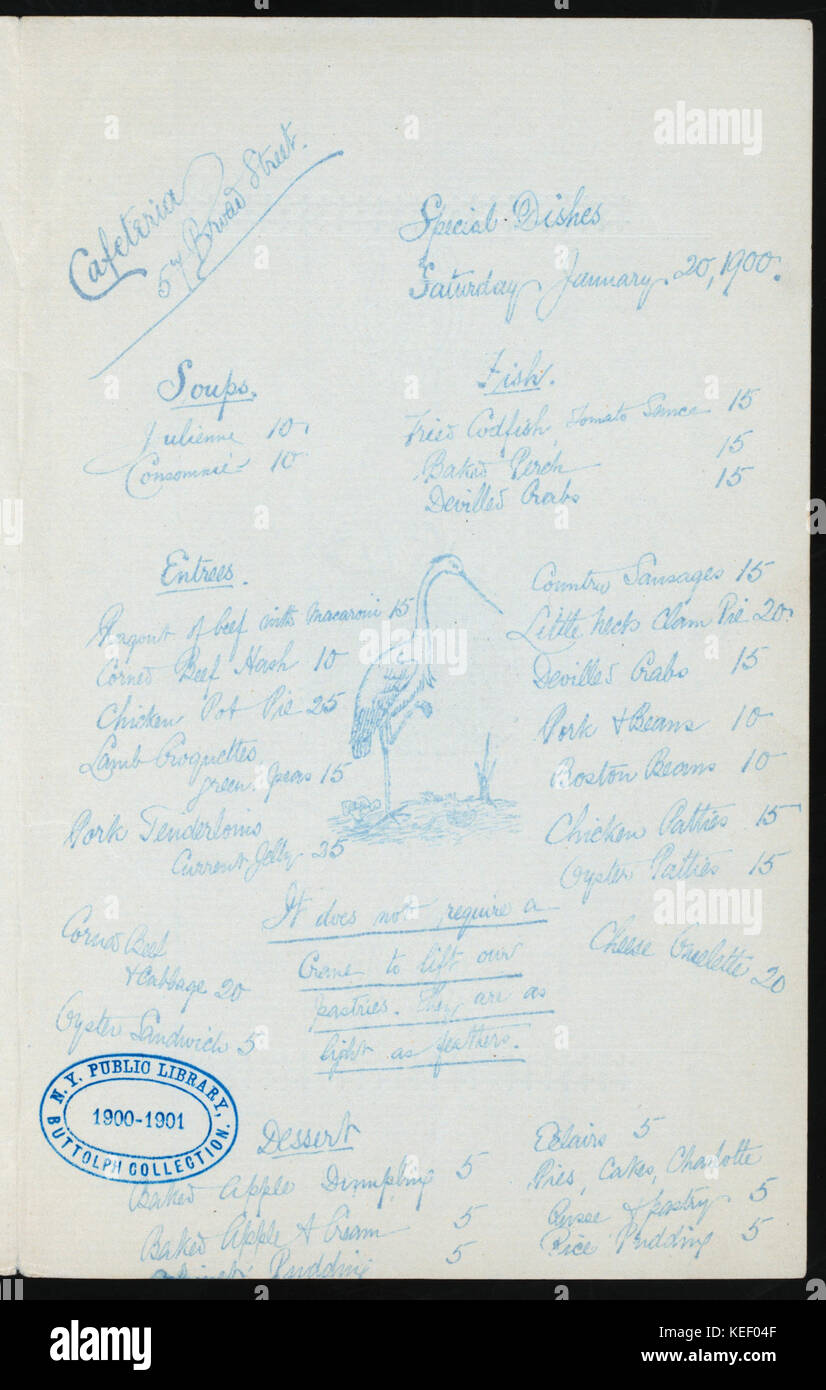 Cafeteria
57 Broad Street.
Special Dishes
Saturday January 20, 1900.
Soups.
Julienne 10
Consommé 10
Fish.
Fried Codfish, Tomato Sauce 15
Baked Perch 15
Devilled Crabs 15
Entrees.
Ragout of beef with Macaroni 15
Corned Beef Hash 10
Chicken Pot Pie 25
Lamb Croquettes
green peas 15
Pork Tenderloins
Current Jelly 25
Corned Beef
& Cabbage 20
Oyster Sandwich 5
Country Sausages 15
Little Necks Clam Pie 20
Devilled Crabs 15
Pork & Beans 10
Boston Beans 10
Chicken Patties 15
Oyster Patties 15
Cheese Omelette 20
It does not require a
Crane to lift our
pastries. They are as
light as feathers.
N.Y. PUBLIC LIBRARY,
1900-1901
BUTTOLPH COLLECTION.
Dessert
Baked Apple Dumpling 5
Baked Apple & Cream 5
Pudding 5
Eclairs 5
Pies, Cakes, Charlotte
Russe & pastry 5
Rice Pudding 5
alamy
Image ID: KEF04F
www.alamy.com